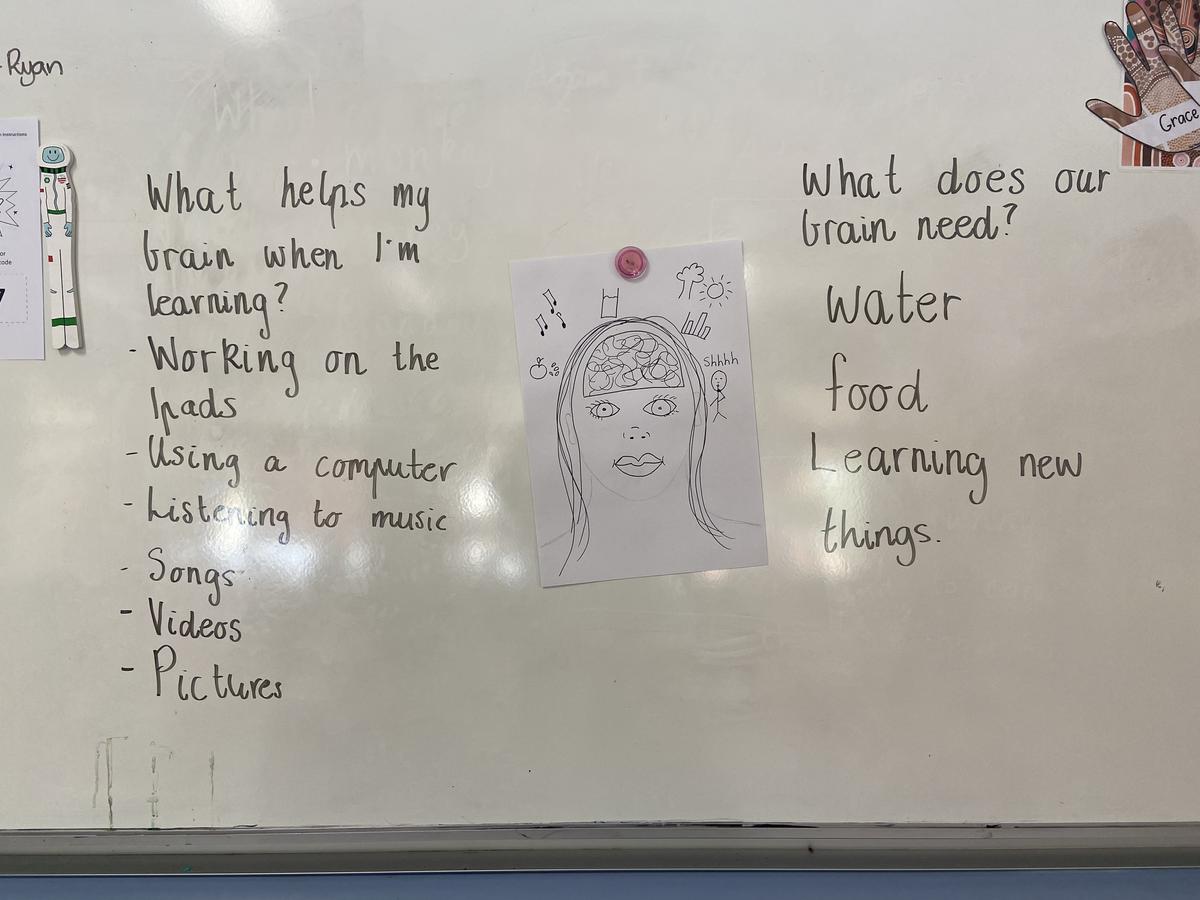 Ryan
What helps my
brain when I'm
learning?
- Working on the
Ipads
- Using a computer
- Listening to music
- Songs
- Videos
- Pictures
Shhhh
What does our
brain need?
water
food
Learning new
things.
Grace